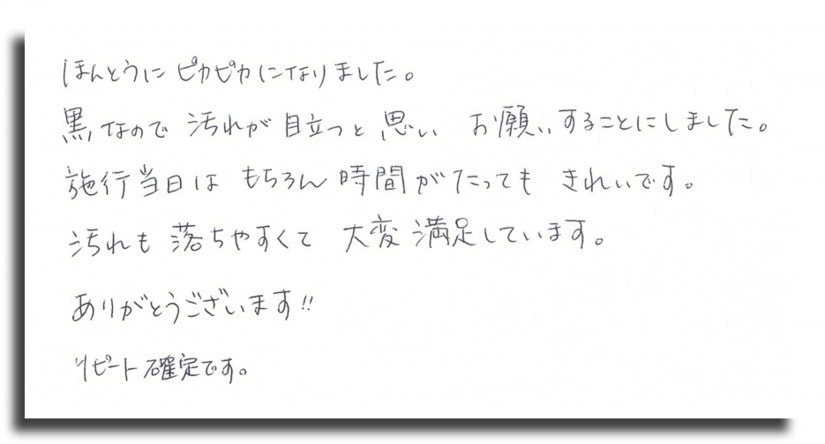 ほんとうにピカピカになりました。
黒なので汚れが目立つと思い お願いすることにしました。
施行当日は もちろん 時間がたっても きれいです。
汚れも 落ちやすくて 大変満足しています。
ありがとうございます!!
リピート確定です。